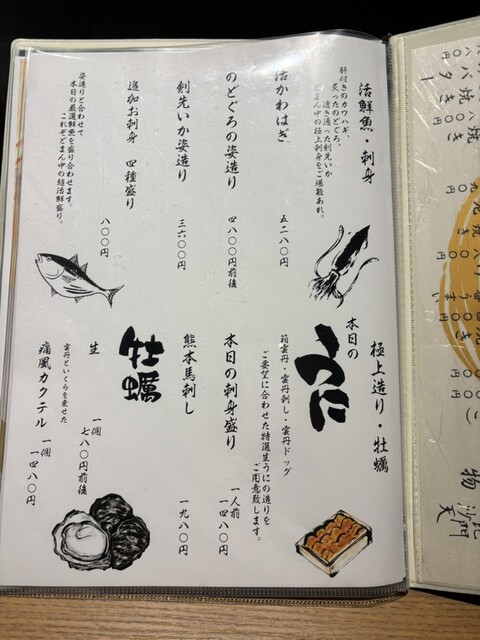 活鮮魚・刺身
肝付きのカワハギ、
炙ったのどぐろ、
透き通った剣先いか
どまん中の極上刺身をご堪能あれ。
活かわはぎ
五二八〇円
のどぐろの姿造り
四八〇〇円前後
剣先いか姿造り
三六〇〇円
追加お刺身 四種盛り
八〇〇円
姿造りと合わせて
本日の厳選鮮魚を盛り合わせます。
これぞどまん中の超活鮮盛り。
極上造り・牡蠣
本日の
うに
箱雲丹・雲丹刺し・雲丹ドッグ
ご要望に合わせた特選生うにの造りを
ご用意致します。
本日の刺身盛り
一人前
一四八〇円
熊本馬刺し
一九八〇円
牡蠣
生
一個
七八〇円前後
雲丹といくらを乗せた
痛風カクテル
一個
一四八〇円
バター
焼き
物
沙門天